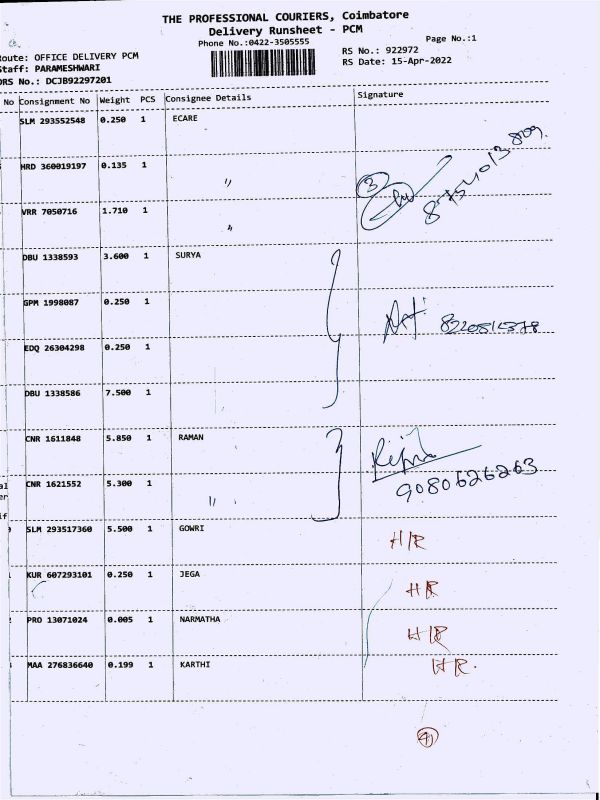 THE PROFESSIONAL COURIERS, Coimbatore
Delivery Runsheet - PCM
Phone No.:0422-3505555
Page No.:1
oute: OFFICE DELIVERY PCM
RS No.: 922972
taff: PARAMESHWARI
RS Date: 15-Apr-2022
DRS No.: DCJB92297201
No Consignment No Weight PCS Consignee Details Signature
SLM 293552548 0.250 1 ECARE
HRD 360019197 0.135 1 "
3
VRR 7050716 1.710 1 "
DBU 1338593 3.600 1 SURYA
GPM 1998087 0.250 1
EDQ 26304298 0.250 1
DBU 1338586 7.500 1
CNR 1611848 5.850 1 RAMAN
9080626263
CNR 1621552 5.300 1 "
SLM 293517360 5.500 1 GOWRI HR
KUR 607293101 0.250 1 JEGA HR
PRO 13071024 0.005 1 NARMATHA HR
MAA 276836640 0.199 1 KARTHI HR.
4